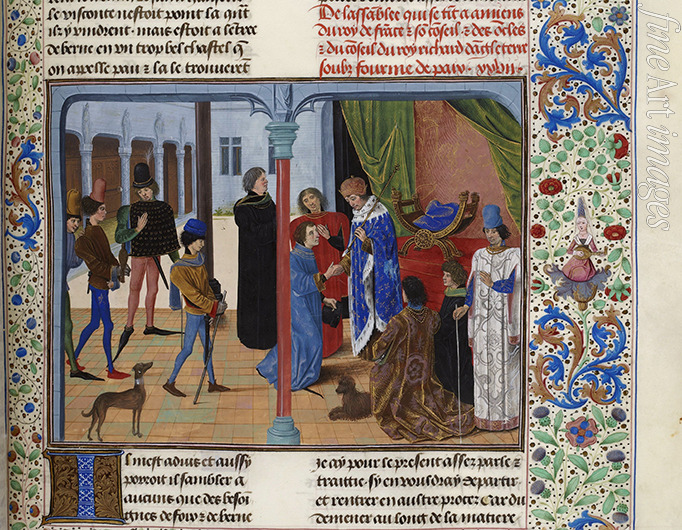 le visconte nestoit point la qnt
il z vindrent. mais estoit a letre
de berne en vn trop bel chastel q̄
on appelle pau ⁊ la le trouuerēt
De lassablee qui se fit a amiens
du roy de frāce ⁊ so cōseil ⁊ des ōcles
⁊ du cōseil du roy richard dāgleterre
soubz fourme de paix. xxvii
Il mest aduis et aussy
porroit il sambler a
aucuns que des besoī
gnes de foix ⁊ de berne
Je ay pour le present assez parle ⁊
traittie. sy en vouldray departir
et rentrer en aultre proces. Car du
demener au long de la matiere
fine Art images